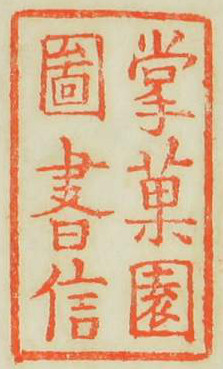 掌菓園
圖書信